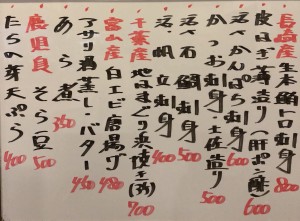 長崎産生本鮪トロ刺身 800
皮はぎ薄造り(肝ポン酢) 600
活〆かんぱち刺身 600
かつお刺身・土佐造り 500
活〆石鯛刺身 500
活〆帆立刺身 400
千葉産地はまぐり浜焼き(3ヶ) 700
富山産白エビ唐揚げ 480
アサリ酒蒸し・バター 480
あら煮 350
鹿児島そら豆 500
たらの芽天ぷら 400